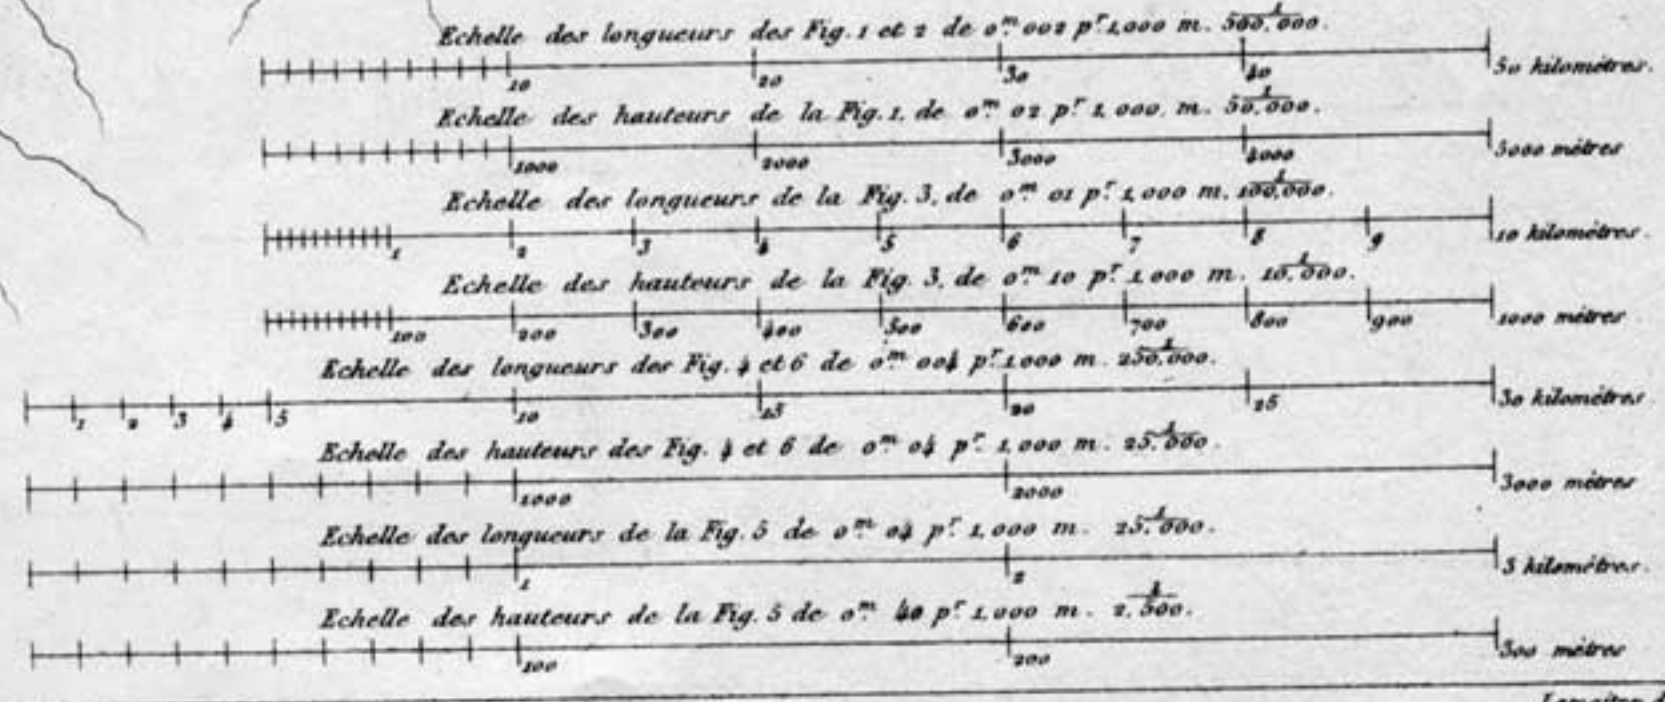 Echelle des longueurs des Fig. 1 et 2 de 0.m 002 p.r 1,000 m. 1/500,000.
10 20 30 40 50 kilométres.
Echelle des hauteurs de la Fig. 1, de 0.m 02 p.r 1,000, m. 1/50,000.
1000 2000 3000 4000 5000 métres
Echelle des longueurs de la Fig. 3, de 0.m 01 p.r 1,000 m. 1/100,000.
1 2 3 4 5 6 7 8 9 10 kilométres.
Echelle des hauteurs de la Fig. 3, de 0.m 10 p.r 1,000 m. 1/10,000.
100 200 300 400 500 600 700 800 900 1000 métres
Echelle des longueurs des Fig. 4 et 6 de 0.m 004 p.r 1,000 m. 1/250,000.
1 2 3 4 5 10 15 20 25 30 kilométres
Echelle des hauteurs des Fig. 4 et 6 de 0.m 04 p.r 1,000 m. 1/25,000.
1000 2000 3000 métres
Echelle des longueurs de la Fig. 5 de 0.m 04 p.r 1,000 m. 1/25,000.
1 2 3 kilométres.
Echelle des hauteurs de la Fig. 5 de 0.m 40 p.r 1,000 m. 1/2,500.
100 200 300 métres